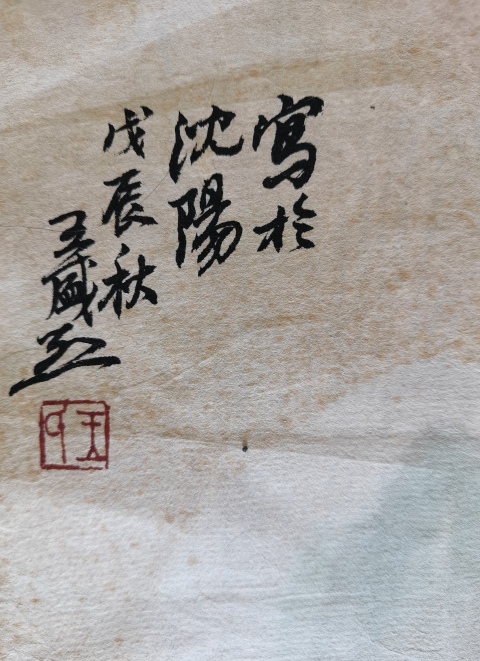 寫於
沈陽
戊辰秋
王盛烈